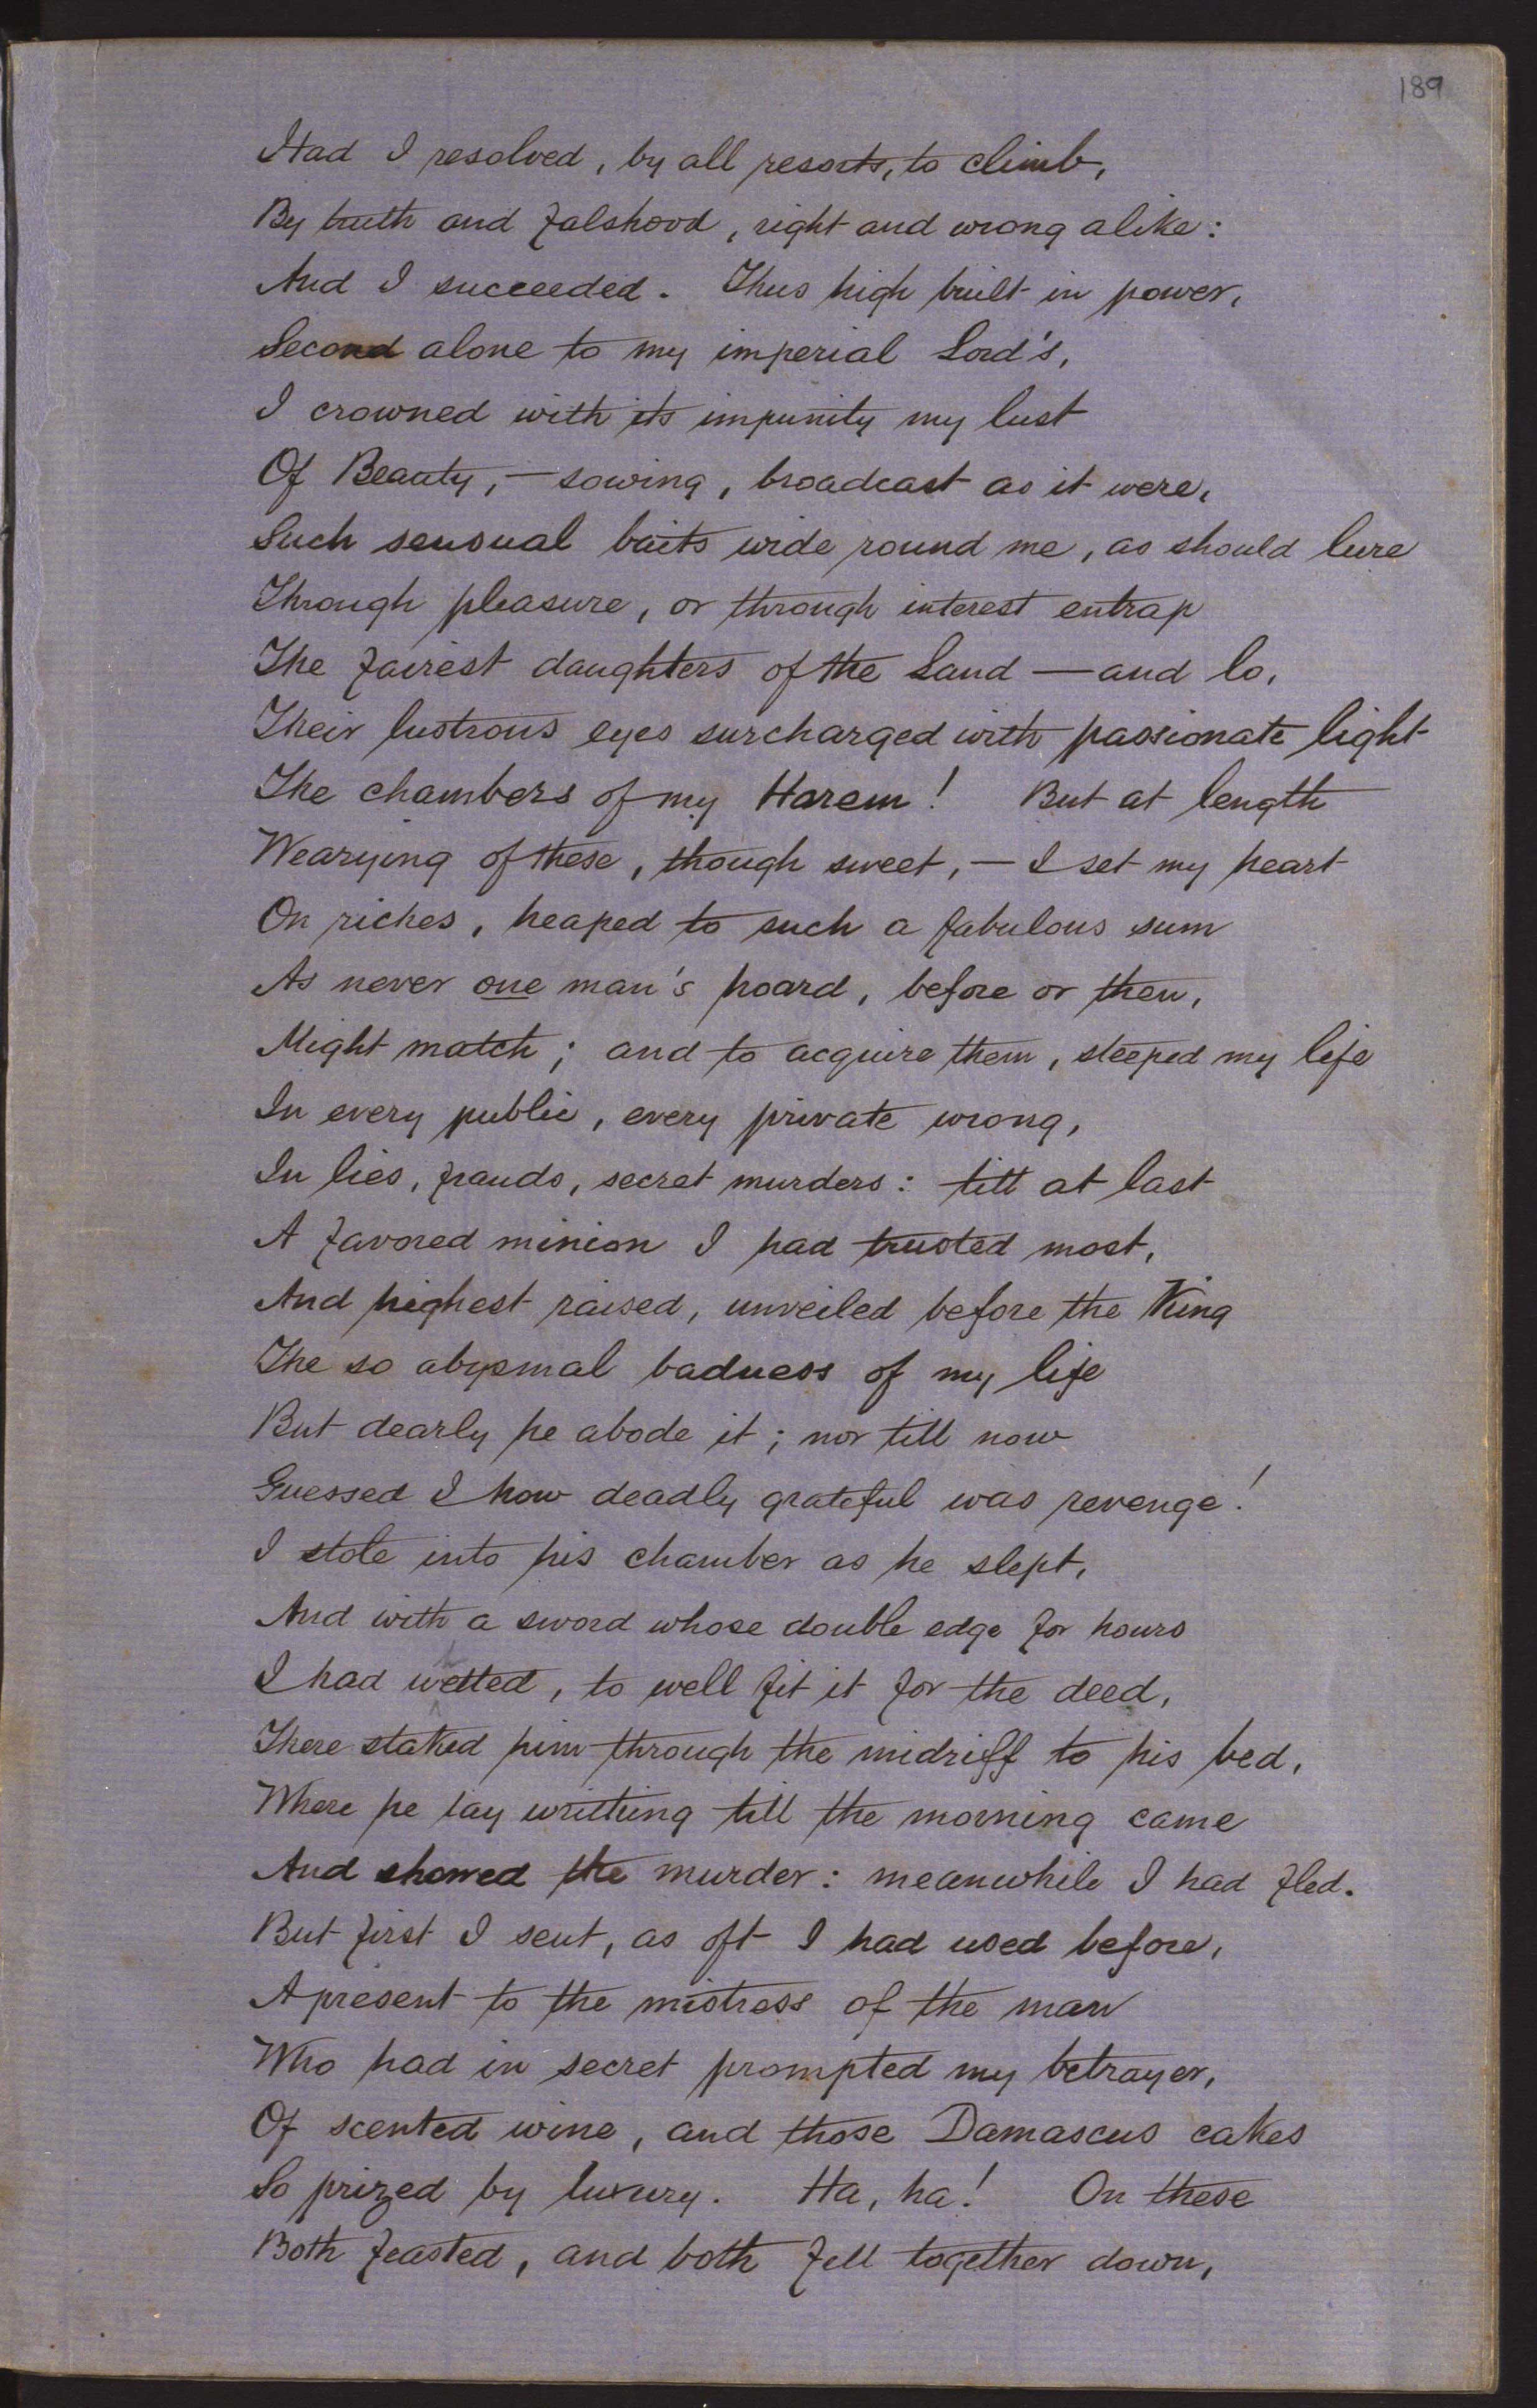 189
Had I resolved, by all resorts, to climb,
By truth and falshood, right and wrong alike:
And I succeeded. Thus high built in power,
Second alone to my imperial Lord's,
I crowned with its impunity my lust
Of Beauty, — sowing, broadcast as it were,
Such sensual baits wide round me, as should lure
Through pleasure, or through interest entrap
The fairest daughters of the Land — and lo,
Their lustrous eyes surcharged with passionate light
The chambers of my Harem! But at length
Wearying of these, though sweet, — I set my heart
On riches, heaped to such a fabulous sum
As never one man's hoard, before or then,
Might match; and to acquire them, steeped my life
In every public, every private wrong,
In lies, frauds, secret murders: till at last
A favored minion I had trusted most,
And highest raised, unveiled before the King
The so abysmal badness of my life
But dearly he abode it; nor till now
Guessed I how deadly grateful was revenge!
I stole into his chamber as he slept,
And with a sword whose double edge for hours
I had whetted, to well fit it for the deed,
There staked him through the midriff to his bed,
Where he lay writhing till the morning came
And showed the murder: meanwhile I had fled.
But first I sent, as oft I had used before,
A present to the mistress of the man
Who had in secret prompted my betrayer,
Of scented wine, and those Damascus cakes
So prized by luxury. Ha, ha! On these
Both feasted, and both fell together down,